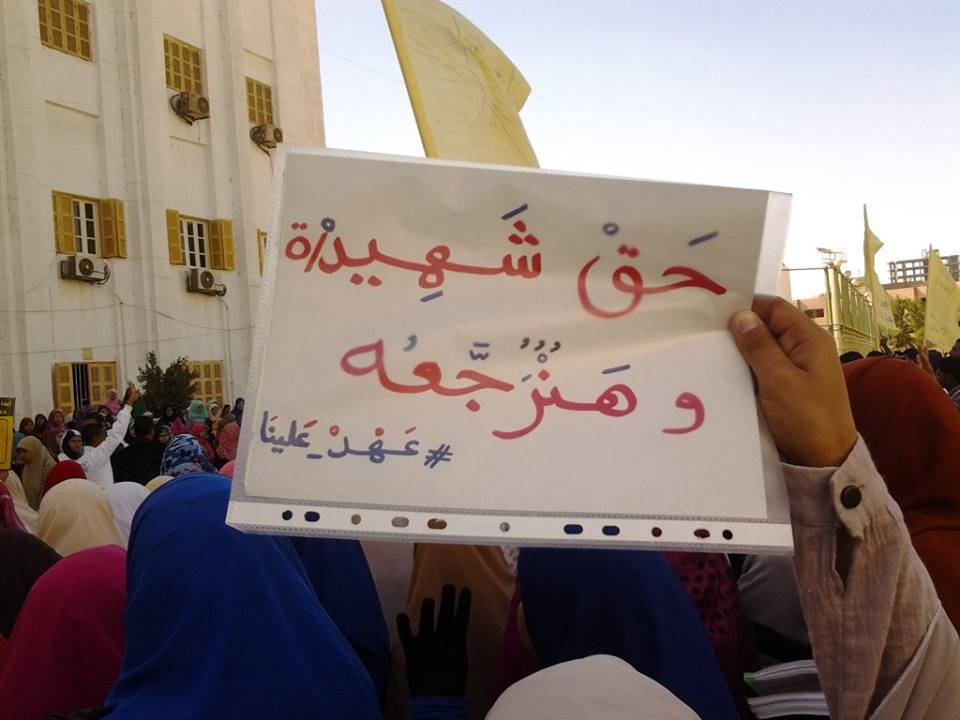 حَقْ شَهِيد/ة
و هَنْرَجَّعُه
#عَهْدْ_عَلينَا